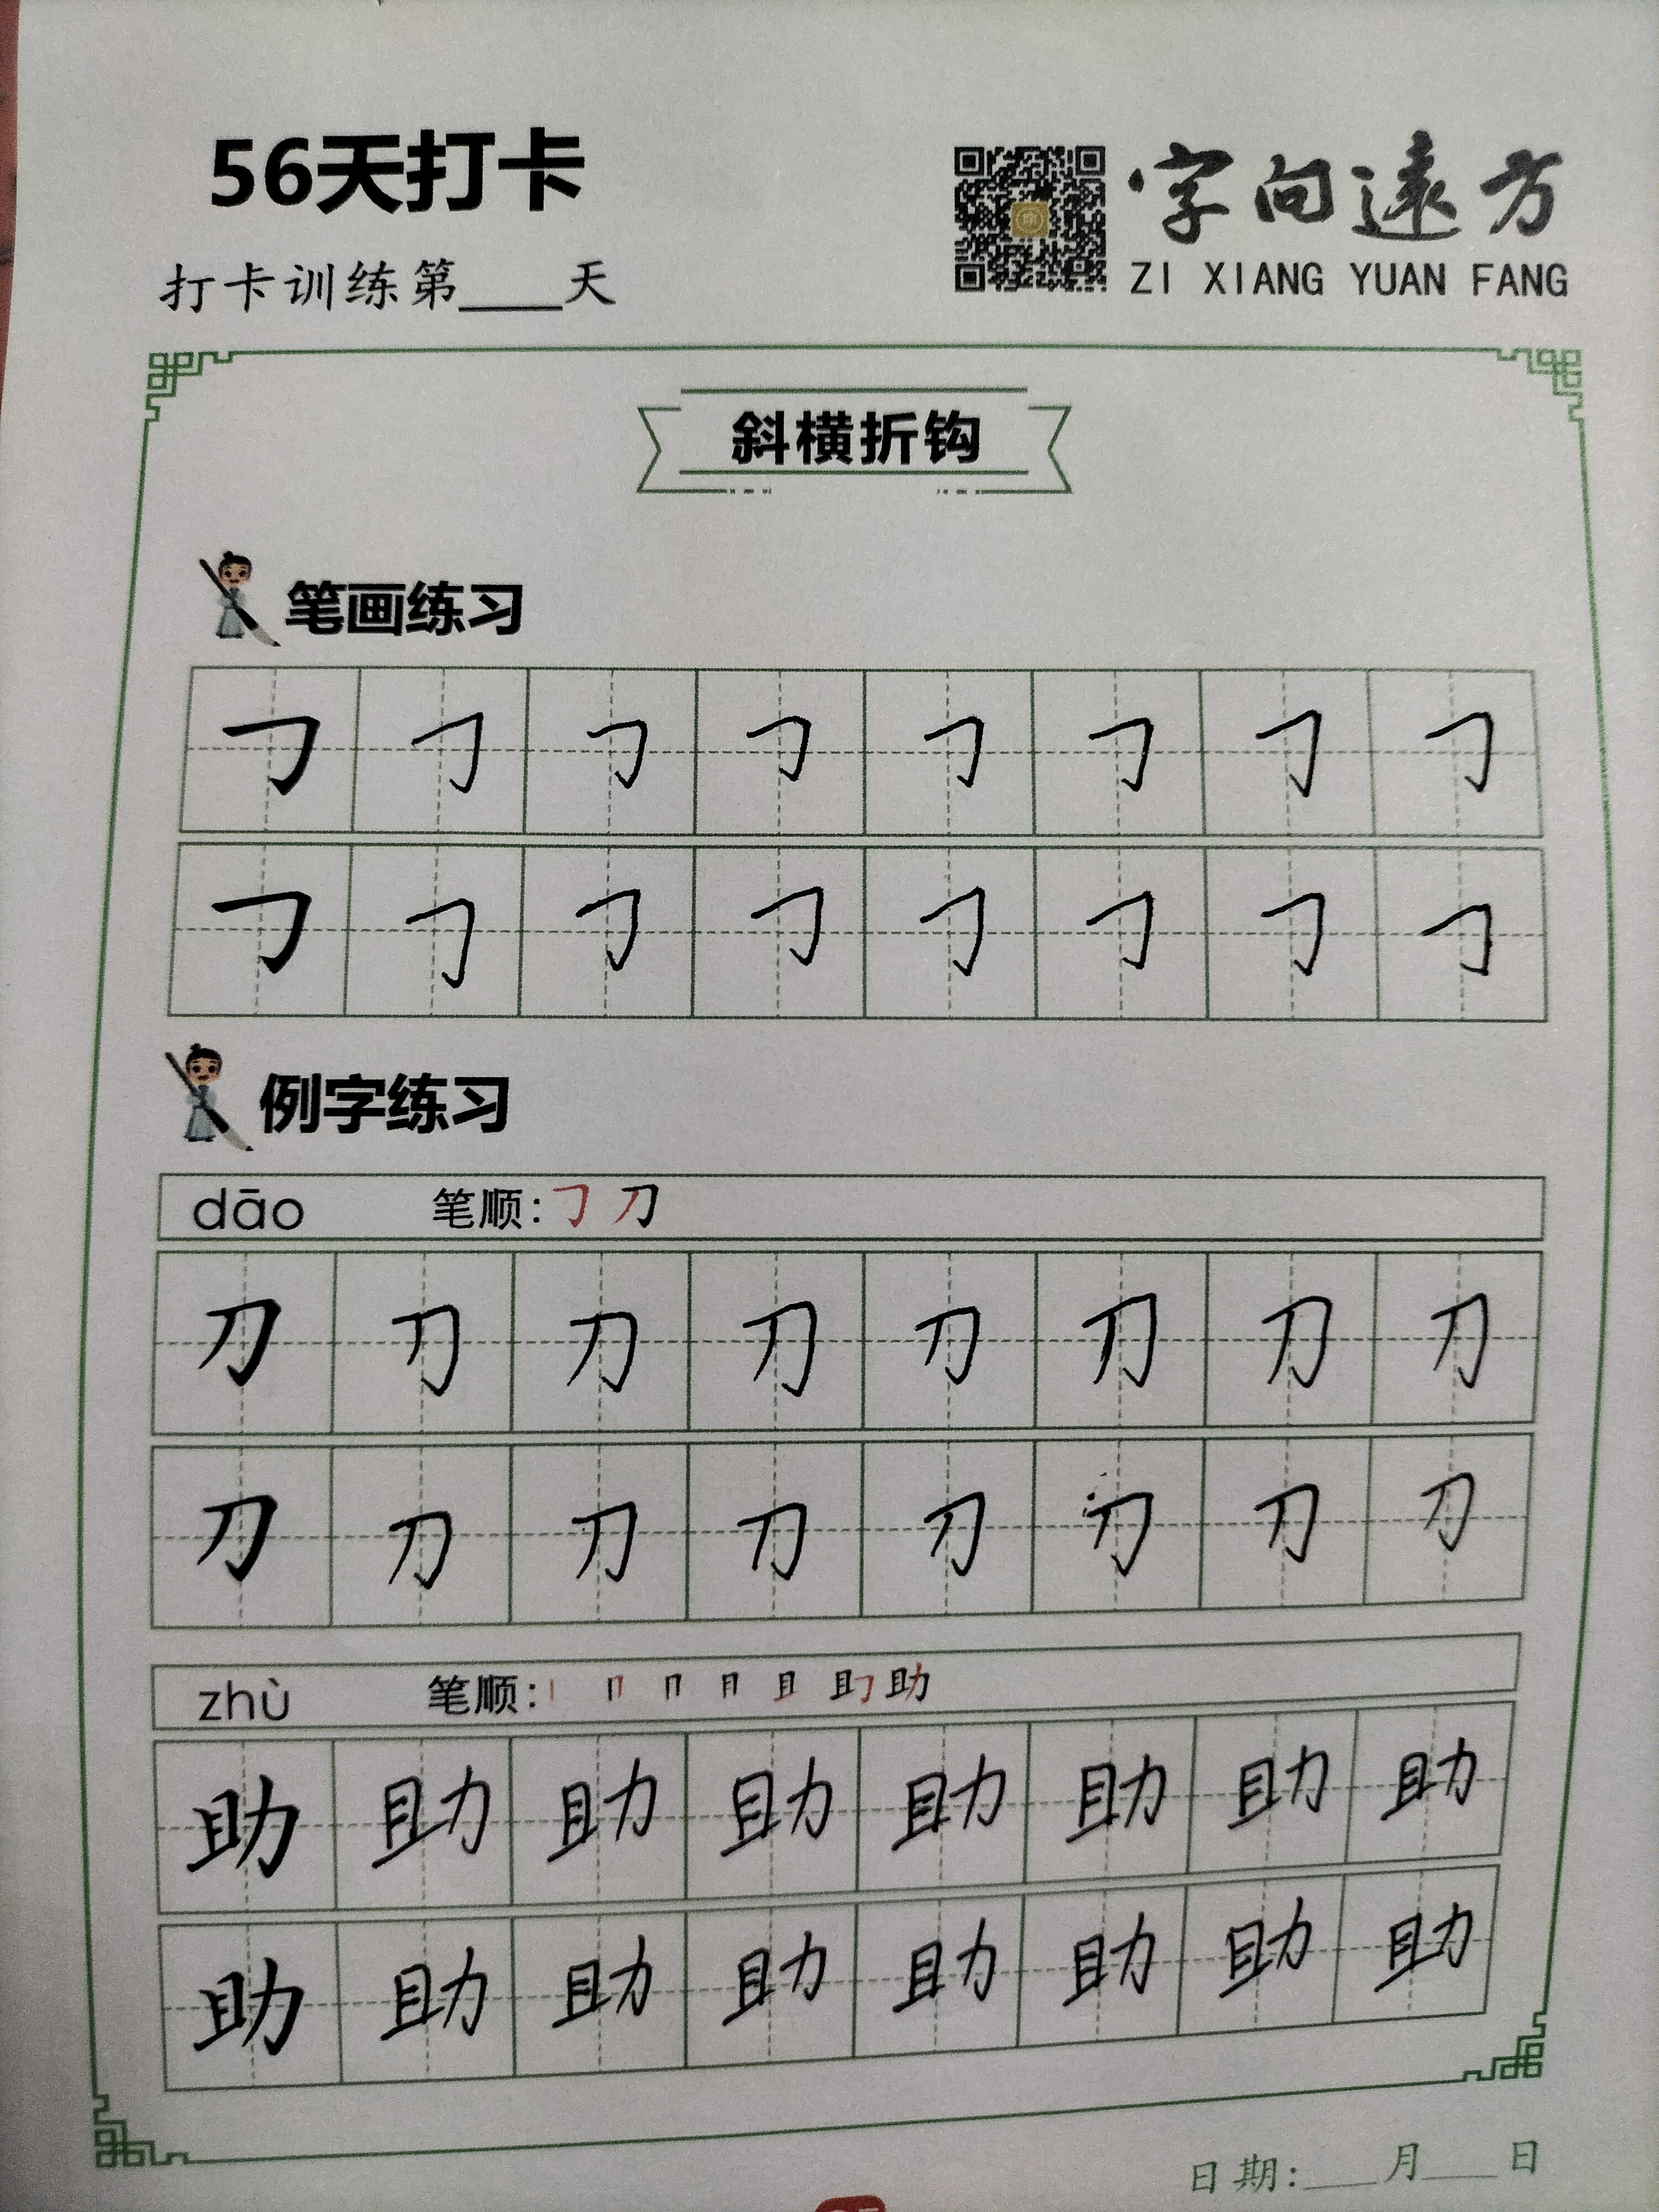 56天打卡
字向遠方
打卡训练第____天
ZI XIANG YUAN FANG
斜横折钩
笔画练习
㇆ ㇆ ㇆ ㇆ ㇆ ㇆ ㇆ ㇆
㇆ ㇆ ㇆ ㇆ ㇆ ㇆ ㇆ ㇆
例字练习
dāo 笔顺:㇆ 刀
刀 刀 刀 刀 刀 刀 刀 刀
刀 刀 刀 刀 刀 刀 刀 刀
zhù 笔顺:丨 冂 冂 月 且 助
助 助 助 助 助 助 助 助
助 助 助 助 助 助 助 助
日期:____月____日